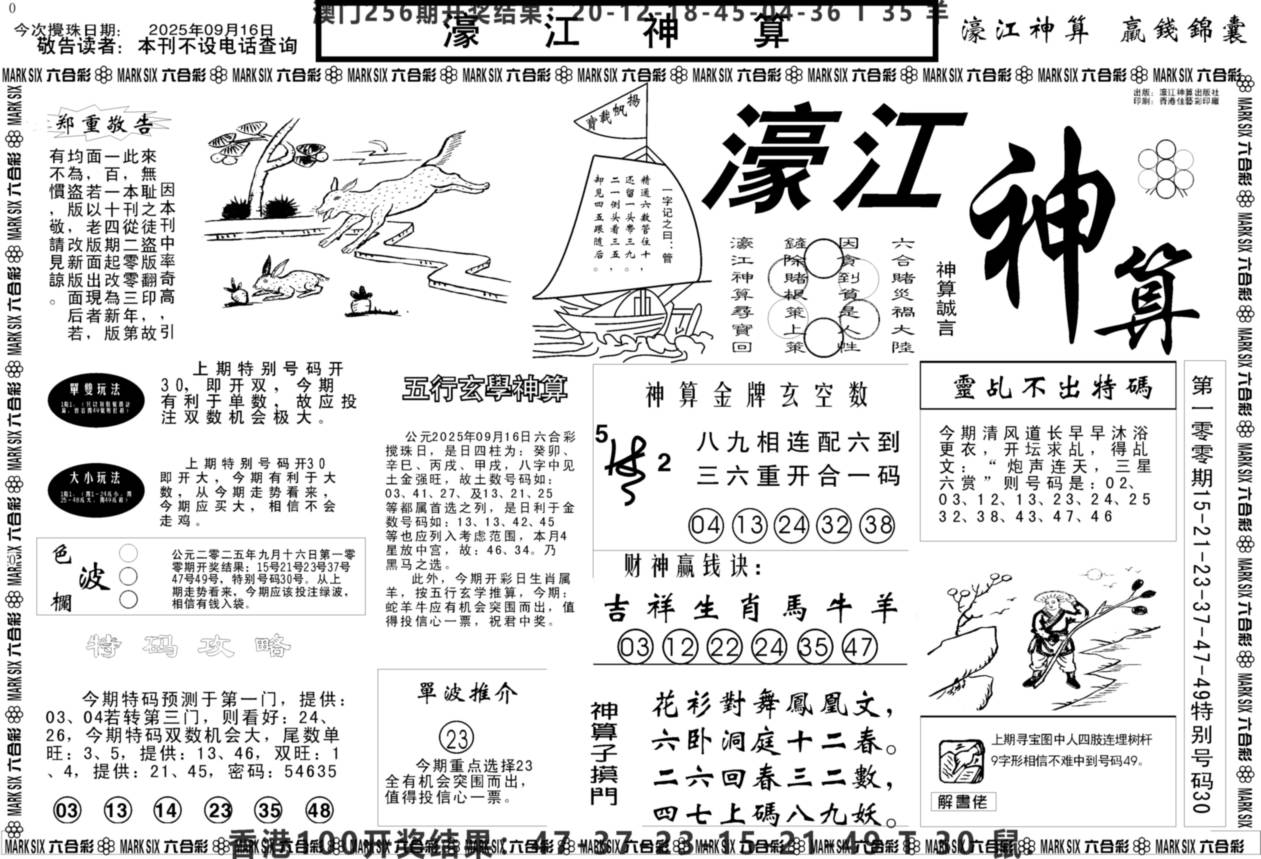 0
澳门256期开奖结果：20-12-18-45-04-36 T 35 羊
今次攪珠日期： 2025年09月16日
敬告读者：本刊不设电话查询
濠 江 神 算
濠江神算 贏錢錦囊
MARK SIX 六合彩 MARK SIX 六合彩 MARK SIX 六合彩 MARK SIX 六合彩 MARK SIX 六合彩 MARK SIX 六合彩 MARK SIX 六合彩 MARK SIX 六合彩 MARK SIX 六合彩 MARK SIX 六合彩 MARK SIX 六合彩
出版：濠江神算出版社
印刷：香港佳藝彩印廠
郑重敬告
因本刊中率奇高，引
來無恥之徒盜版翻印故
此，一本刊從二零零三年第
一百十四期起改為新版，
面，若以老版面出現者，
均為盜版，請見諒。后若
有不慣，敬請見諒。
揚帆載譽
一字记之曰：管
精通六数管住十，
还留一头带三九。
二一倒头看三五，
却见四五跟随后。
濠江
神算
六合賭災禍大陸
因貪到貧是人性
鏟除賭根策上策
濠江神算尋寶回
神算誠言
單雙玩法
上期特别号码开
30，即开双，今期
有利于单数，故应投
注双数机会极大。
大小玩法
上期特别号码开30
即开大，今期有利于大
数，从今期走势看来，
今期应买大，相信不会
走鸡。
色波欄
公元二零二五年九月十六日第一零
零期开奖结果：15号21号23号37号
47号49号，特别号码30号。从上
期走势看来，今期应该投注绿波，
相信有钱入袋。
特码攻略
今期特码预测于第一门，提供：
03、04若转第三门，则看好：24、
26，今期特码双数机会大，尾数单
旺：3、5，提供：13、46，双旺：1
、4，提供：21、45，密码：54635
03 13 14 23 35 48
五行玄學神算
公元2025年09月16日六合彩
搅珠日，是日四柱为：癸卯、
辛巳、丙戌、甲戌，八字中见
土金强旺，故土数号码如：
03、41、27、及13、21、25
等都属首选之列，是日利于金
数号码如：13、13、42、45
等也应列入考虑范围，本月4
星放中宫，故：46、34。乃
黑马之选。
此外，今期开彩日生肖属
羊，按五行玄学推算，今期：
蛇羊牛应有机会突围而出，值
得投信心一票，祝君中奖。
單波推介
23
今期重点选择23
全有机会突围而出，
值得投信心一票。
神算金牌玄空数
5
2
八九相连配六到
三六重开合一码
04 13 24 32 38
财神赢钱诀：
吉祥生肖馬牛羊
03 12 22 24 35 47
神算子摸門
花衫對舞鳳凰文，
六卧洞庭十二春。
二六回春三二數，
四七上碼八九妖。
靈乩不出特碼
今期清风道长早早沐浴
更衣，开坛求乩，得乩
文：“炮声连天，三星
六赏”则号码是：02、
03、12、13、23、24、25
32、38、43、47、46
上期寻宝图中人四肢连埋树杆
9字形相信不难中到号码49。
解畫佬
第一零零期15-21-23-37-47-49特别号码30
香港100开奖结果：47-37-23-15-21-49 T 30 鼠
MARK SIX 六合彩 MARK SIX 六合彩 MARK SIX 六合彩 MARK SIX 六合彩 MARK SIX 六合彩 MARK SIX 六合彩 MARK SIX 六合彩 MARK SIX 六合彩 MARK SIX 六合彩 MARK SIX 六合彩 MARK SIX 六合彩